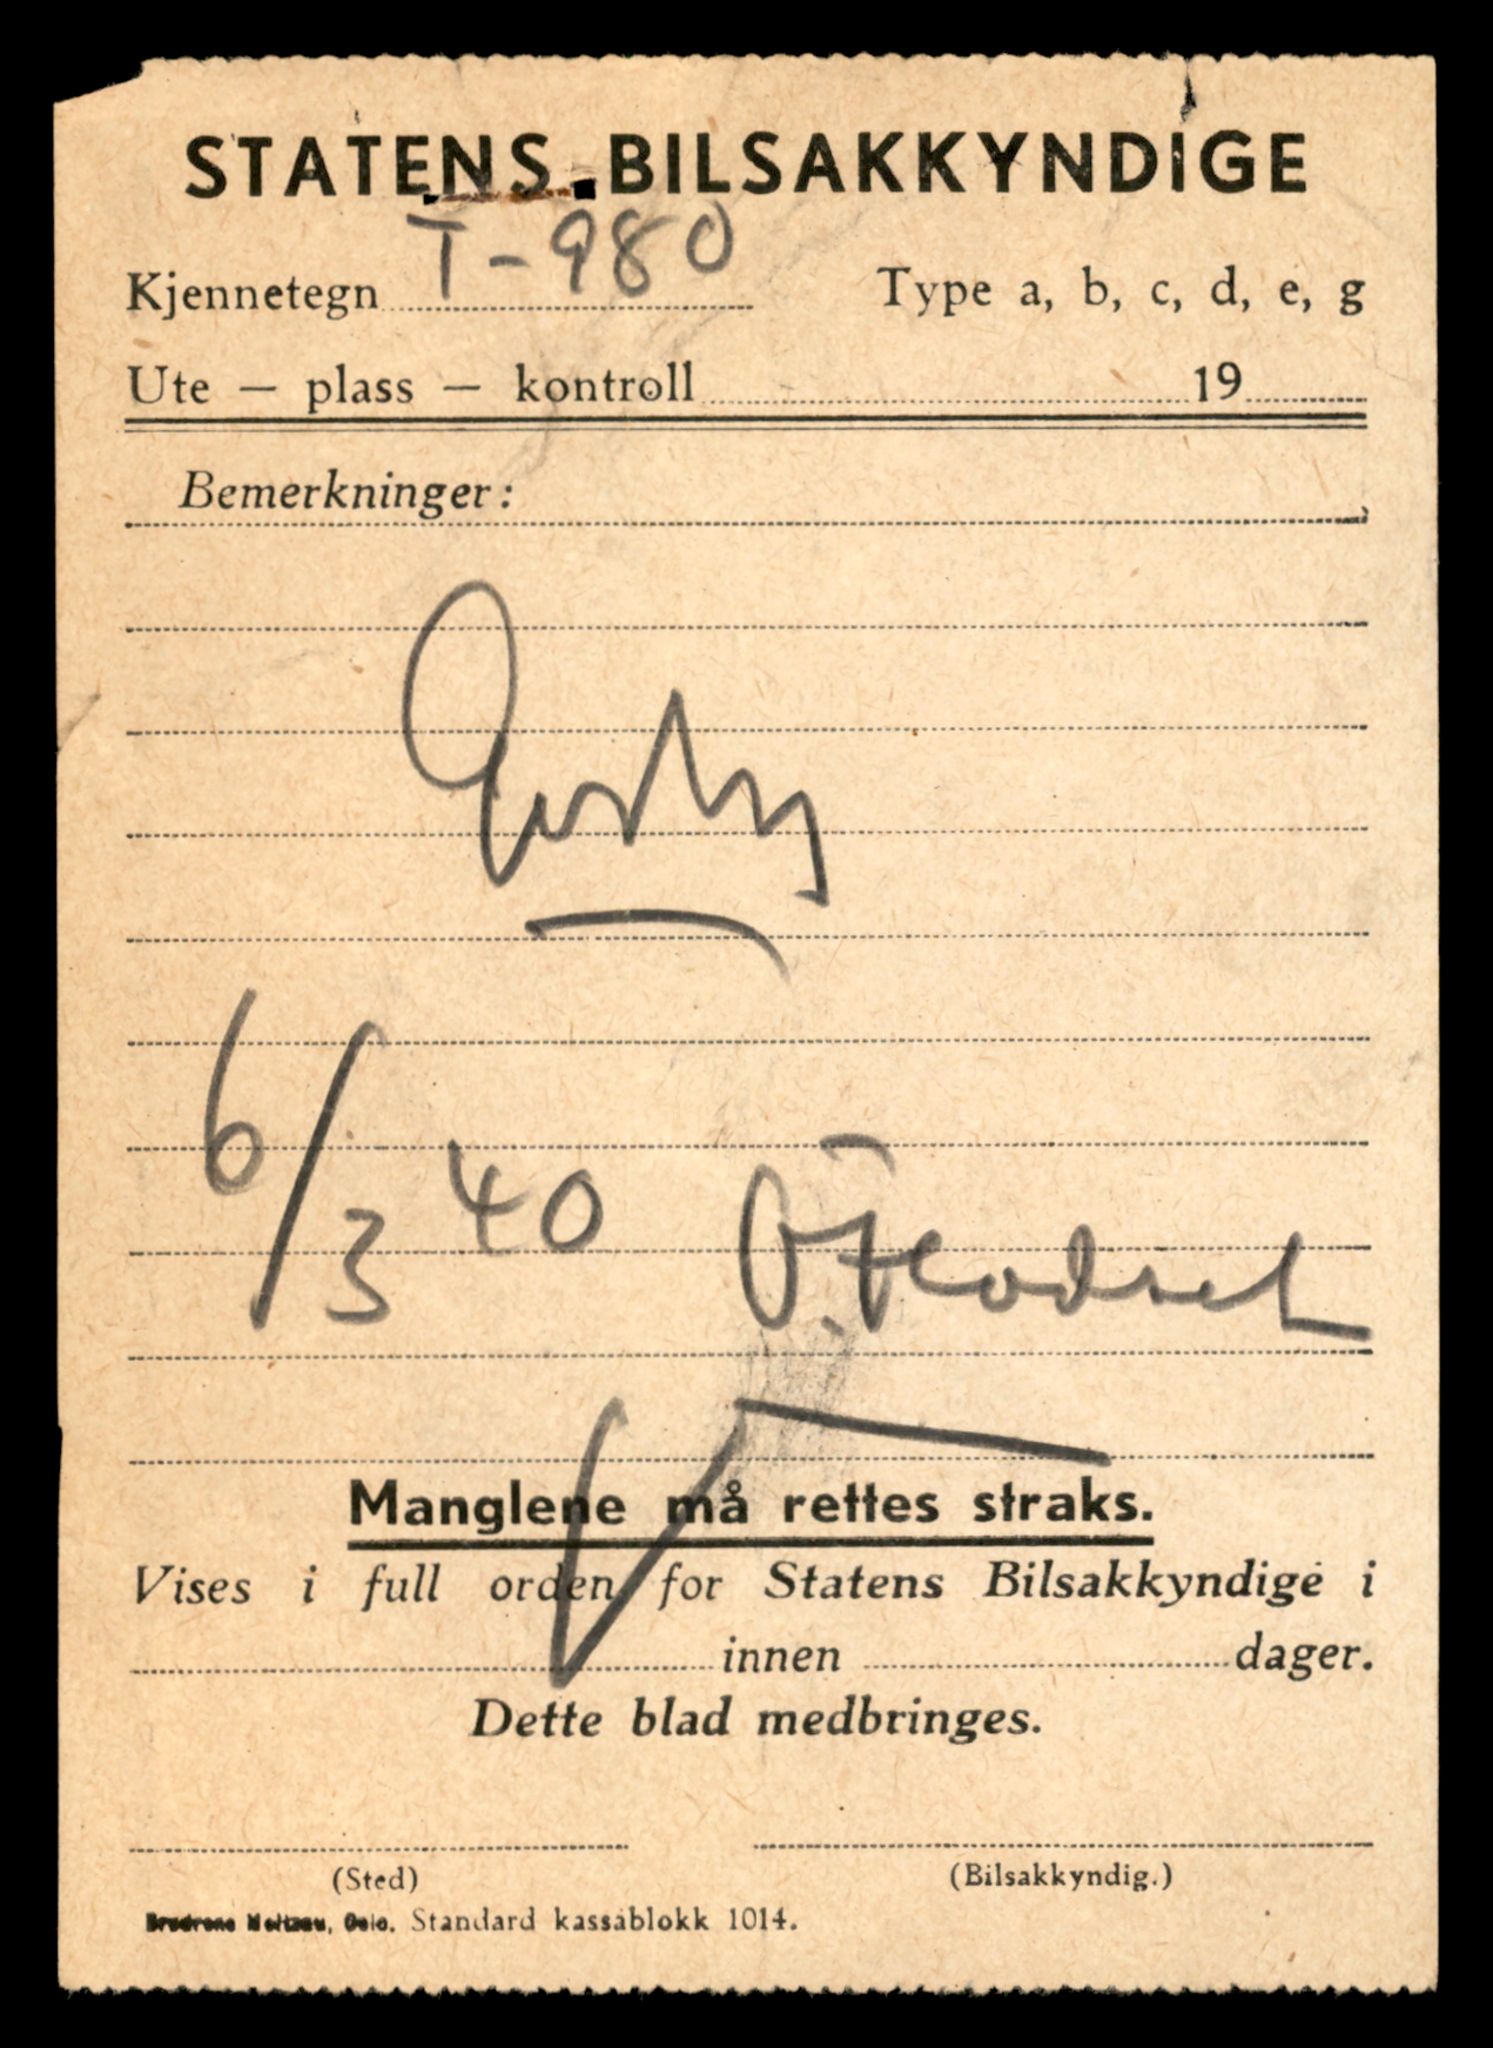 STATENS BILSAKKYNDIGE
Kjennetegn T-980 Type a, b, c, d, e, g
Ute — plass — kontroll 19
Bemerkninger:
6/3 40 O. Flodset
Manglene må rettes straks.
Vises i full orden for Statens Bilsakkyndige i
innen dager.
Dette blad medbringes.
(Sted) (Bilsakkyndig.)
Brødrene Meltzau, Oslo. Standard kassablokk 1014.